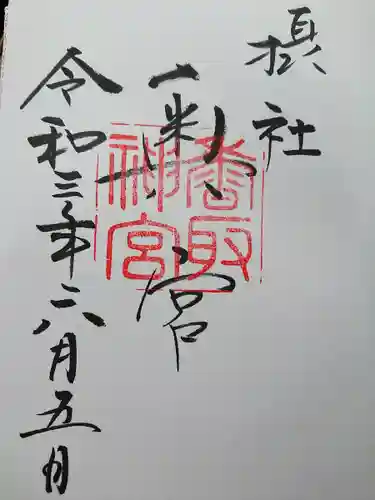 摂社
奥宮
香取
神宮
令和三年六月五日